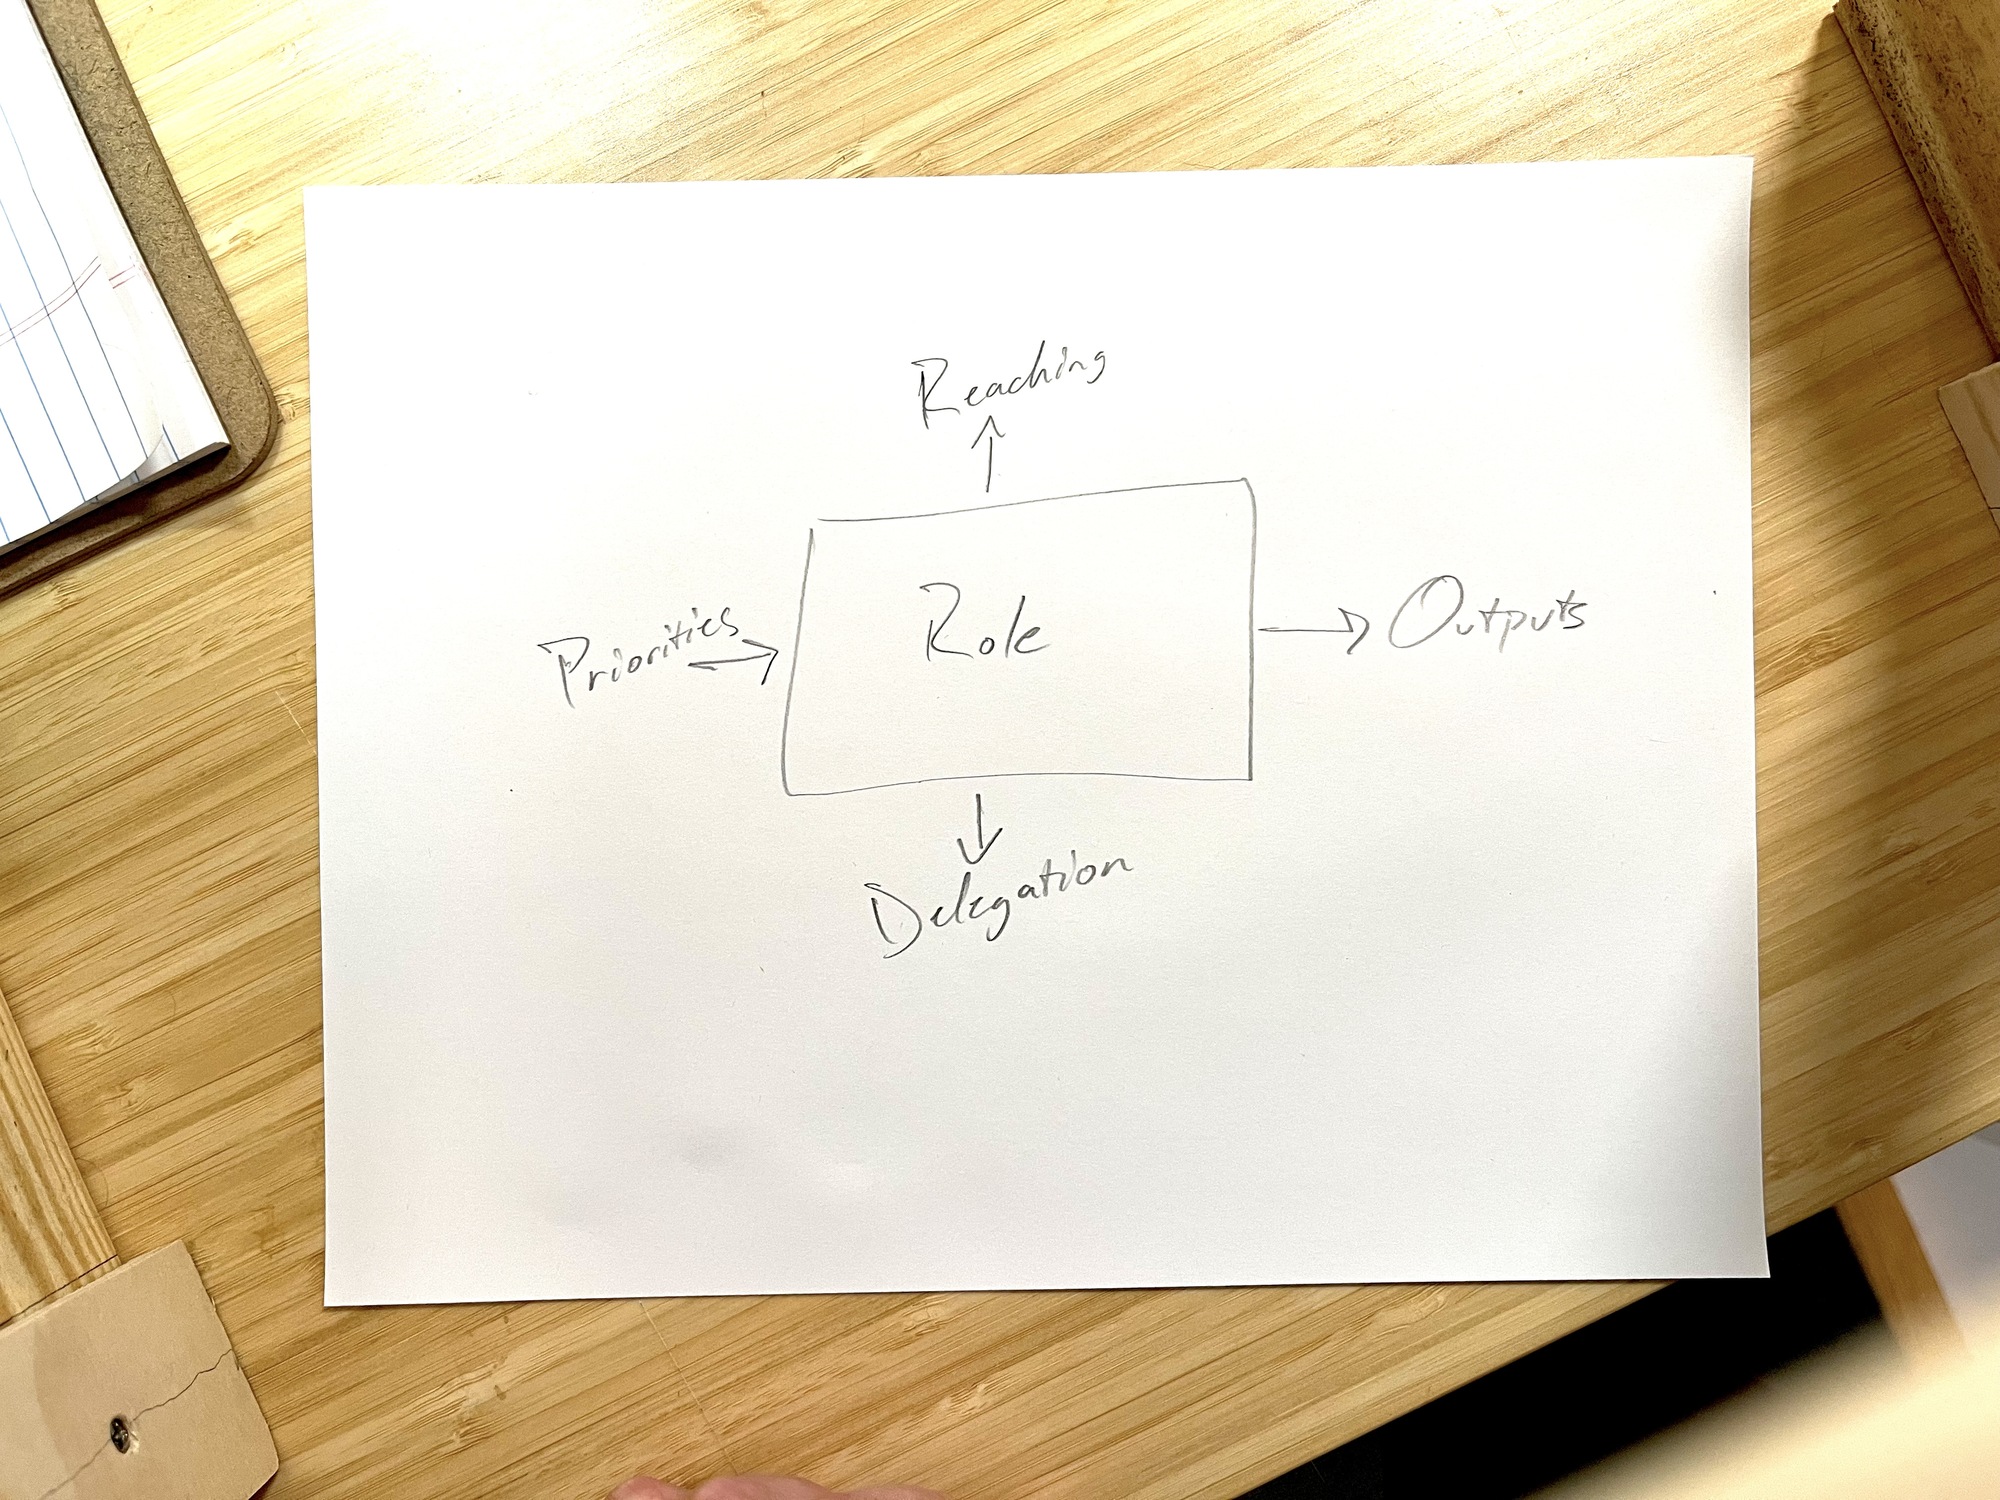 Reaching
Priorities
Role
Outputs
Delegation